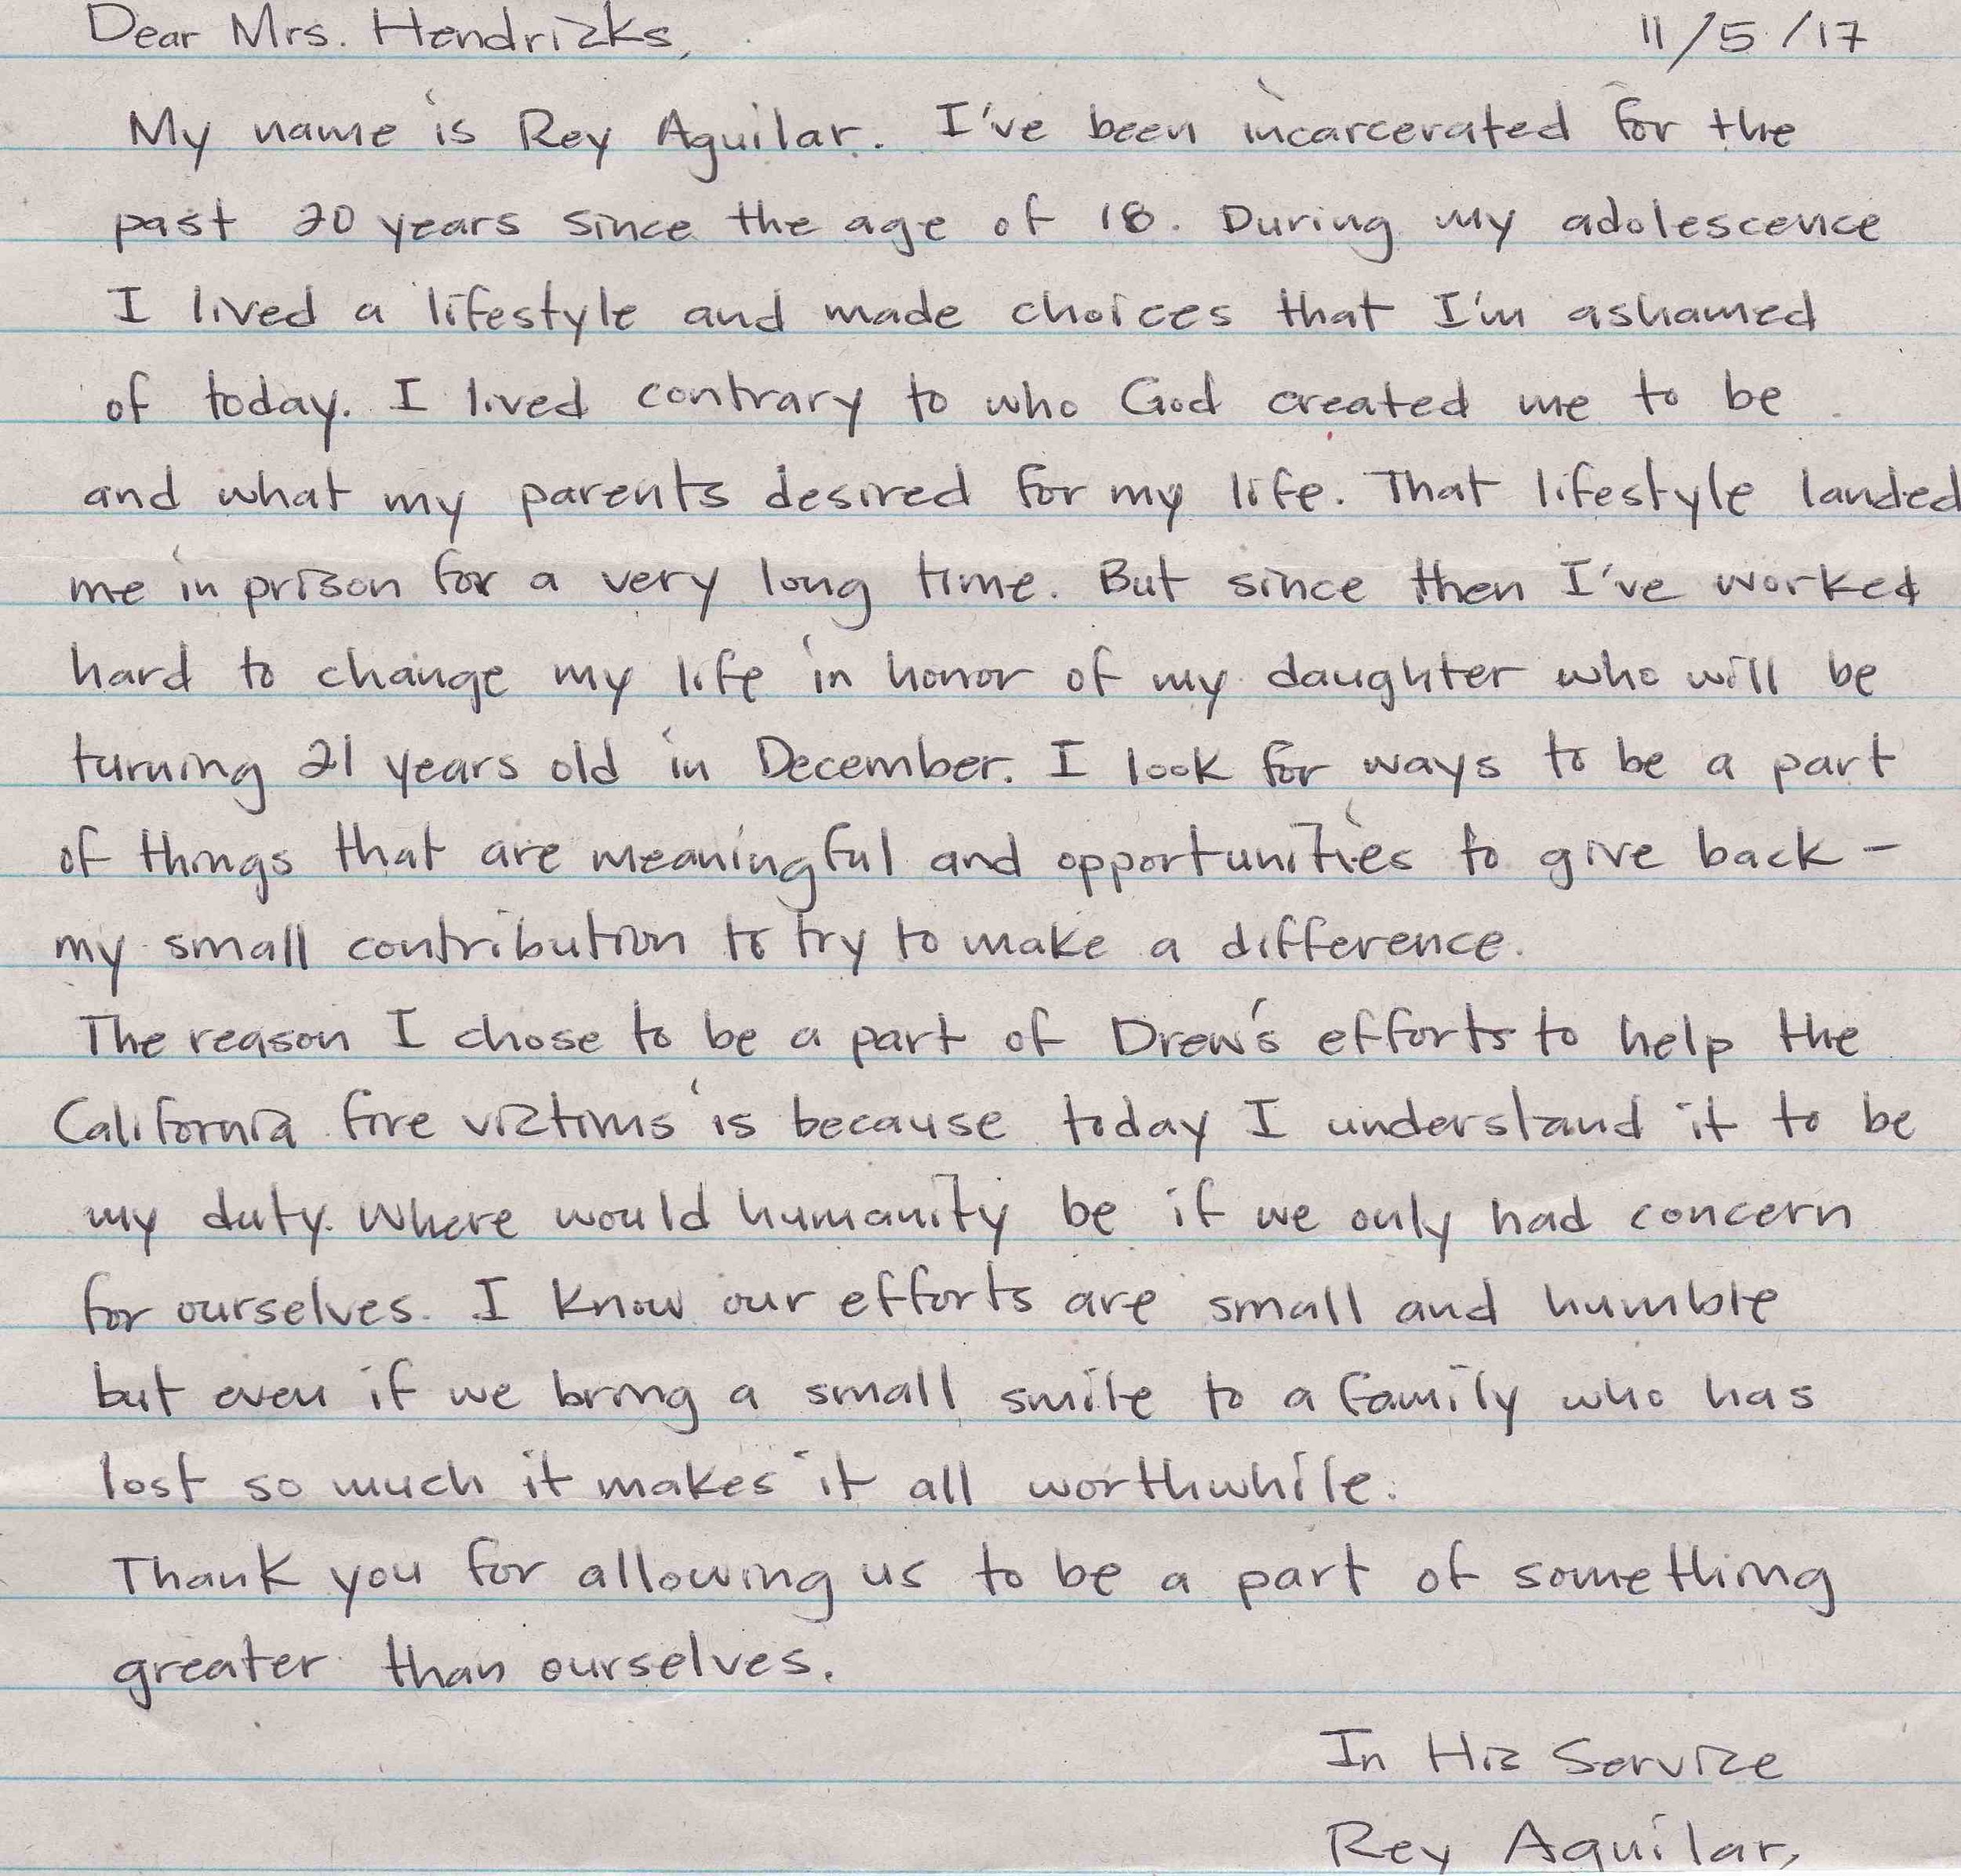 Dear Mrs. Hendricks, 11/5/17
My name is Rey Aguilar. I've been incarcerated for the
past 20 years since the age of 18. During my adolescence
I lived a lifestyle and made choices that I'm ashamed
of today. I lived contrary to who God created me to be
and what my parents desired for my life. That lifestyle landed
me in prison for a very long time. But since then I've worked
hard to change my life in honor of my daughter who will be
turning 21 years old in December. I look for ways to be a part
of things that are meaningful and opportunities to give back -
my small contribution to try to make a difference.
The reason I chose to be a part of Drew's efforts to help the
California fire victims is because today I understand it to be
my duty. Where would humanity be if we only had concern
for ourselves. I know our efforts are small and humble
but even if we bring a small smile to a family who has
lost so much it makes it all worthwhile.
Thank you for allowing us to be a part of something
greater than ourselves.
In His Service
Rey Aguilar,